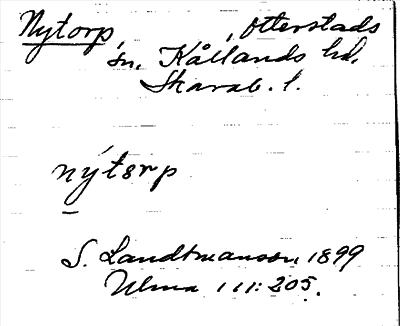 Nytorp, , Otterstads
sn. Kållands hd.
Skarab. l.
nýtorp
S. Landtmansson, 1899
Ulma 111:205.